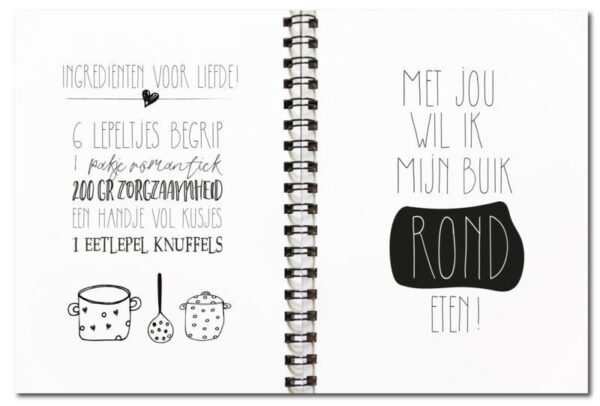 INGREDIENTEN VOOR LIEFDE!
6 LEPELTJES BEGRIP
1 pakje romantiek
200 GR ZORGZAAMHEID
EEN HANDJE VOL KUSJES
1 EETLEPEL KNUFFELS
MET JOU
WIL IK
MIJN BUIK
ROND
ETEN!